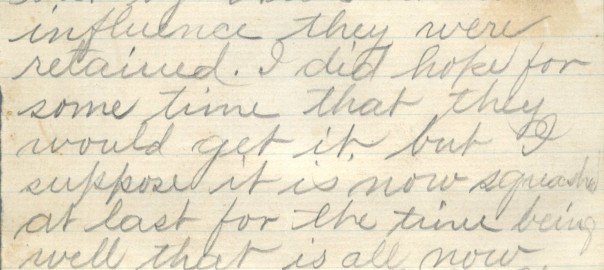 influence they were
retained. I did hope for
some time that they
would get it, but I
suppose it is now squashed
at last for the time being
well that is all now.